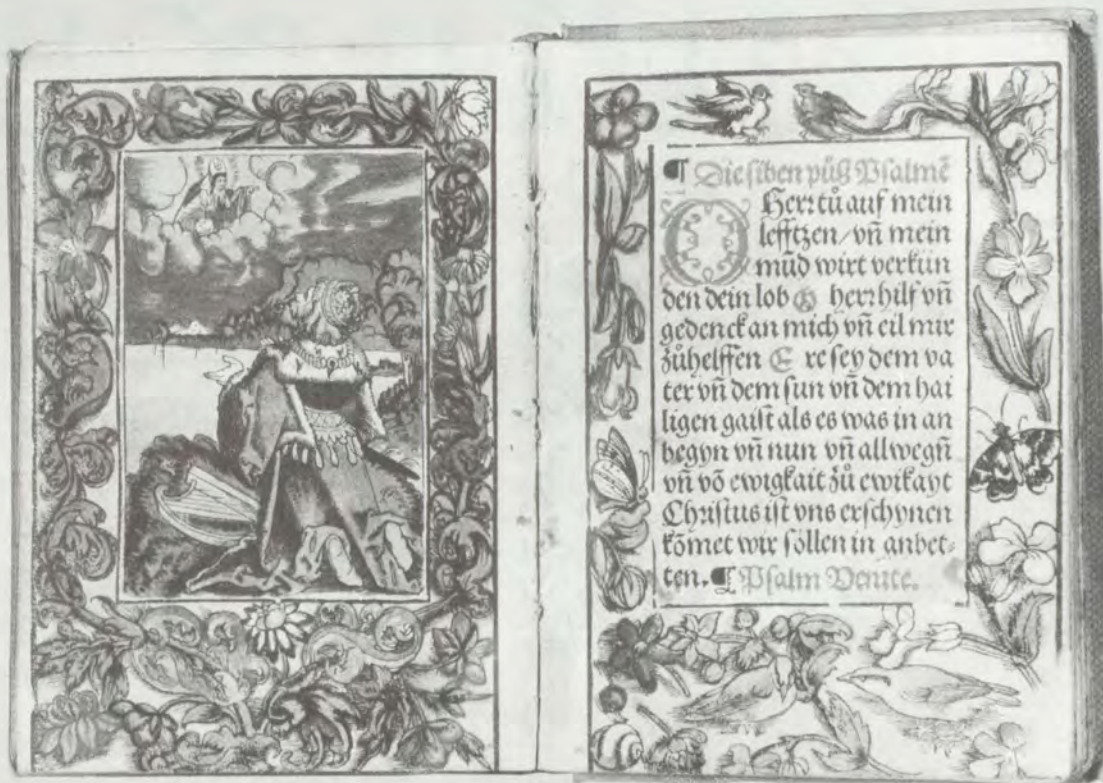 ¶ Die siben půß Psalmē
O Herr tů auf mein
lefftzen/ vn̄ mein
mūd wirt verkün
den dein lob O herr hilf vn̄
gedenck an mich vn̄ eil mir
zůhelffen E re sey dem va
ter vn̄ dem sun vn̄ dem hai
ligen gaist als es was in an
begyn vn̄ nun vn̄ allwegn̄
vn̄ vō ewigkait zů ewikayt
Christus ist vns erschynen
kōmet wir söllen in anbet⸗
ten. ¶ Psalm Venite.